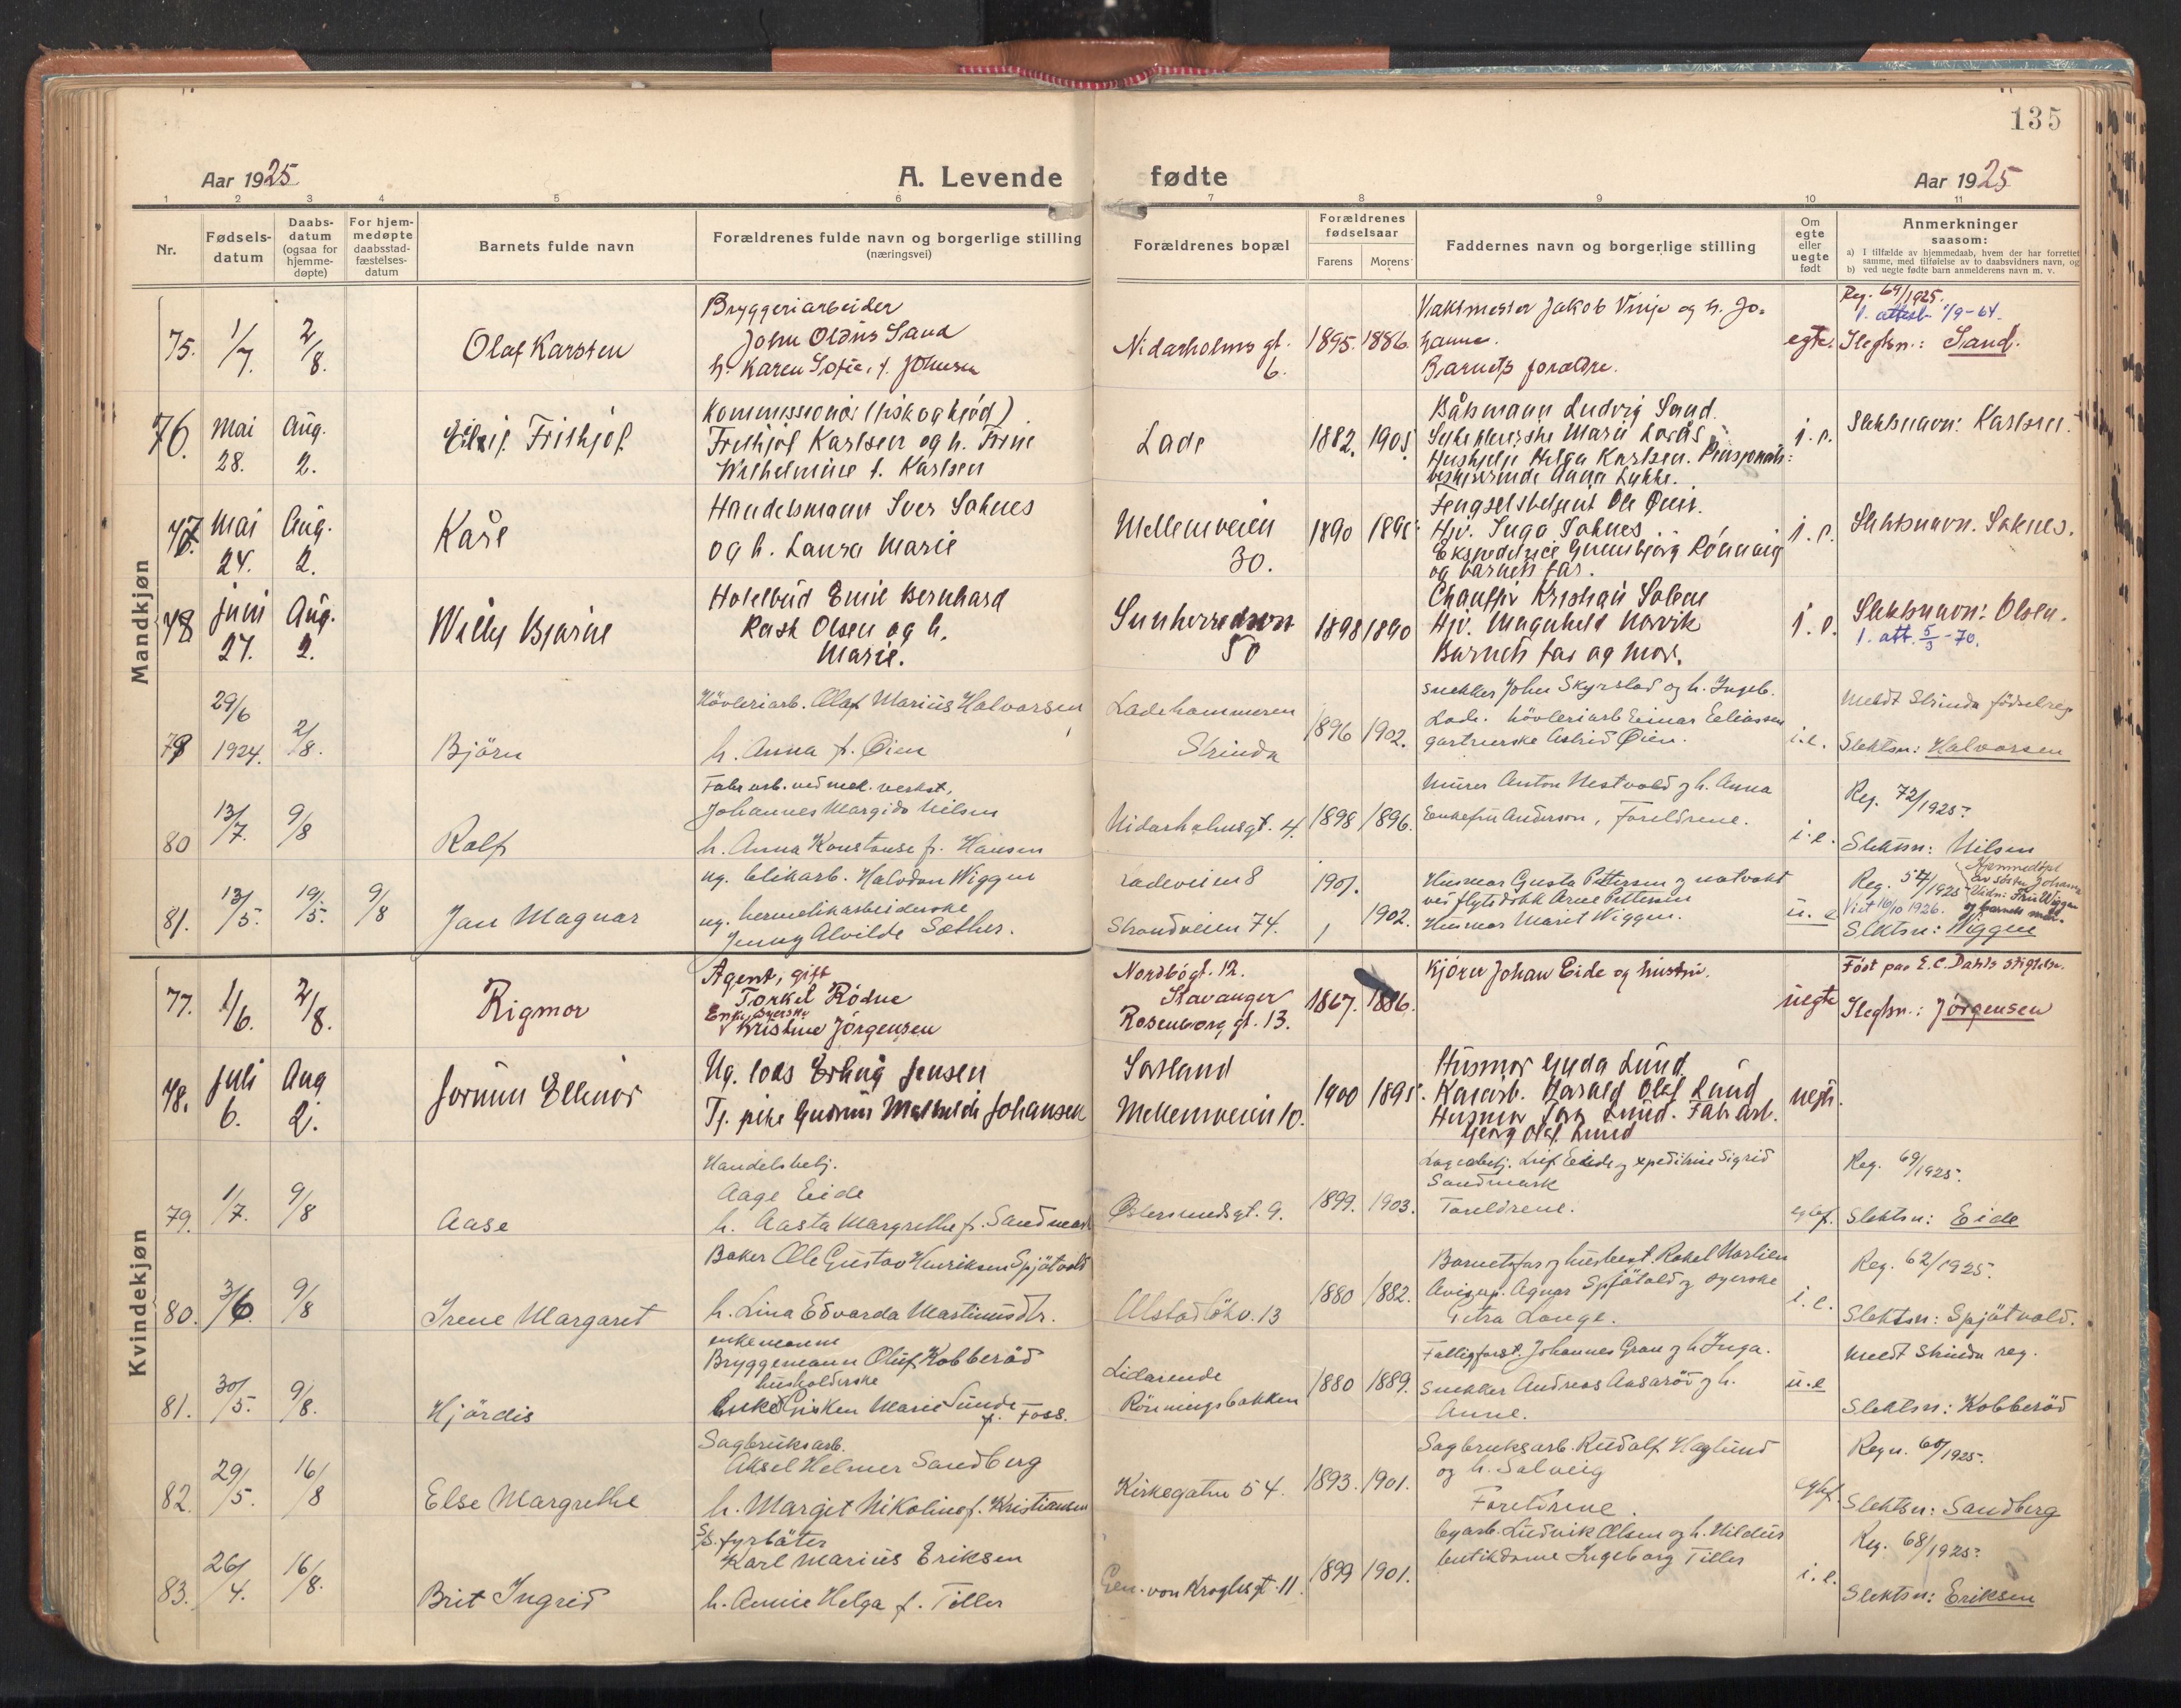 135
Aar 1925
A. Levende fødte
Aar 1925
1 2 3 4 5 6 7 8 9 10 11
Nr.
Fødsels-
datum
Daabs-
datum
(ogsaa for
hjemme-
døpte)
For hjem-
medøpte
daabsstad-
fæstelses-
datum
Barnets fulde navn
Forældrenes fulde navn og borgerlige stilling
(næringsvei)
Forældrenes bopæl
Forældrenes
fødselsaar
Farens Morens
Faddernes navn og borgerlige stilling
Om
egte
eller
uegte
født
Anmerkninger
saasom:
a) I tilfælde av hjemmedaab, hvem der har forrettet
samme, med tilføielse av to daabsvidners navn, og
b) ved uegte fødte barn anmelderens navn m. v.
Mandkjøn
75. 1/7. 2/8.
Olaf Karsten
Bryggeriarbeider
John Oldus Sand
h. Karen Sofie, f. Johnsen
Nidarholms gt.
6.
1895. 1886.
Vaktmester Jakob Vinje og h. Jo-
hanna.
Barnets forældre.
egte.
Reg. 69/1925.
1. attest 1/9-64.
Slegtsn.: Sand.
76. Mai
28.
Aug.
2.
Frithjof
Kommissionær (fisk og kjød)
Frithjof Karlsen og h. Trine
Wilhelmine f. Karlsen
Lade
1882. 1905.
Båtsmann Ludvig Sand.
Marie
Hushjelp Helga Karlsen.
Anna Lykke.
Slektsnavn: Karlsen.
77. Mai
24.
Aug.
2.
Kåre
Handelsmann Iver Saknes
og h. Laura Marie
Mellemveien
30.
1890
Fengselsbetjent Ole
Hjv. Inga Saknes
Ekspeditrice Gunnbjørg Rönning
og barnets far.
Slektsnavn. Saknes.
78 juni
27.
Aug.
2.
Willy Bjarne
Hotelbud Emil Bernhard
Olsen og h.
Marie.
50
1898 1890
Chauffør Kristian
Hjv. Magnhild
Barnets far og mor.
Slektsnavn: Olsen.
1. att. 5/3-70.
79 29/6
1924.
2/8.
Björn
Hövleriarb. Olaf Marius Halvorsen
h. Anna f. Öien
Ladehammeren
Strinda
1896 1902.
snekker John Skyrstad og h. Ingeb.
Lade. hövleriarb Einar Eeliassen
gartnerske Astrid Öien.
i.e.
Meldt Strinda födselreg.
Slektsn: Halvorsen
80 13/7. 9/8
Rolf
Fabr arb. ved mek. verkst.
Johannes Margido Nilsen
h. Anna Konstanse f. Hansen
Nidarholmsgt. 4.
1898 1896.
Murer Anton Nestvold og h. Anna
Enkefru Anderson, Foreldrene.
i.e.
Reg. 72/1925.
Slektsn: Nilsen
81. 13/5. 19/5. 9/8
Jan Magnar
ug. blikarb. Halvdan Wiggen
ug. hermetikarbeiderske
Jenny Alvilde Sæther.
Ladeveien 8
Strandveien 74.
1901.
1902.
Husmor Gusta Pettersen og natvakt
ved flytedokk Arne Pettersen
Husmor Marit Wiggen.
u. e
Reg. 54/1925
Viet 16/10 1926.
Slektsn: Wiggen
Kvindekjøn
77. 1/6. 2/8.
Rigmor
Agent, gift
Torkel Rödne
Enke, syerske
Kristine Jörgensen
Nordbögt. 12.
Stavanger
Rosenborg gt. 13.
1867. 1886.
Kjører Johan Eide og hustru.
uegte
Föst paa E. C. Dahls stiftelse.
Slegtsn.: Jörgensen
78. Juli
6.
Aug
2.
Jorunn Ellinor
Ug. los Erling Jensen
Tj. pike Gudrun Mathilde Johansen
Mellemveien 10.
1900 1895.
Husmor Gyda Lund
Kaiarb. Harald Olaf Lund
Husmor Lund. Fabr arb.
Georg Olaf Lund
uegte.
79. 1/7. 9/8
Aase
Handelsbetj.
Aage Eide
h. Aasta Margrethe f. Sandmark
Östersundsgt. 9.
1899. 1903.
Lagerbetj. Leif Eide og expeditrise Sigrid
Sandmark
Foreldrene.
Reg. 69/1925.
Slektsn: Eide
80. 3/6. 9/8
Irene Margaret
Baker Ole Gustav Henriksen Spjötvold
h. Lina Edvarda Martinusdtr.
13
1880 1882.
Barnets far og husbest. Rakel Marlien
Agnar Spjötvold og syerske
Petra Lange.
i. e.
Reg. 62/1925.
Slektsn: Spjötvold.
81. 30/5. 9/8.
Hjördis
enkemann
Bryggemann Oluf Kobberöd
husholderske
Marie Sunde
f. Foss.
Lidarende
Rönningsbakken
1880 1889.
Johannes Gran og h Inga.
snekker Andreas Aasaröd og h.
Anne.
u.e
Meldt Strinda reg.
Slektsn: Kobberöd
82. 29/5. 16/8
Else Margrethe
Sagbruksarb.
Aksel Helmer Sandberg
h. Margit Nikoline f. Kristiansen
Kirkegaten 54.
1893. 1901.
Sagbruksarb. Rudolf Haglund
og h. Solveig
Foreldrene.
Slektsn: Sandberg
83. 26/4. 16/8.
Brit Ingrid
fyrböter
Karl Marius Eriksen
h. Annie Helga f. Tiller
Gen. von Kroghsgt. 11.
1899 1901.
Ludvik Olsen og h. Hildur
butikdame Ingeborg Tiller
i. e.
Reg. 68/1925.
Slektsn: Eriksen